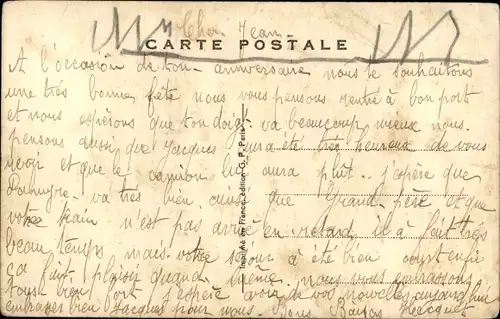 Cher Jean
CARTE POSTALE
A l'occasion de ton anniversaire nous te souhaitons
une très bonne fête nous vous pensons rentré à bon port
et nous espérons que ton doigt va beaucoup mieux nous
pensons aussi que Jacques aura été très heureux de vous
revoir et que le camion lui aura plut. J'espère que
va très bien ainsi que Grand père et que
votre train n'est pas arrivé en retard il a fait très
beau temps mais votre séjour a été bien court enfin
ça fait plaisir quand même. nous vous embrassons
tous bien fort J'espère avoir de vos nouvelles aujourd'hui
embrasse bien Jacques pour nous. Bons Baisers Jacques
Imprimé en France, édition G. P. Paris